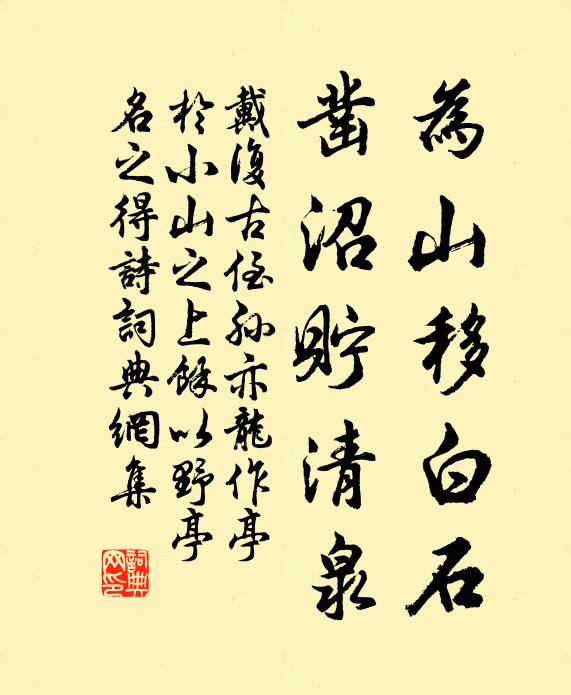 為山移白石
鑿沼貯清泉
戴復古侄孙亦龍作亭
於小山之上餘以野亭
名之得詩詞典網集
詞典網印